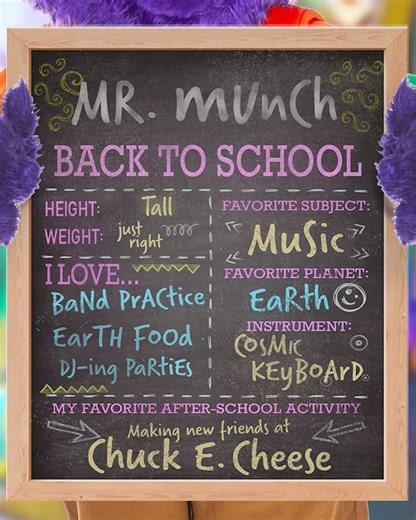 MR. MUnCh
BACK TO SCHOOL
HEIGHT: Tall
WEIGHT: just right
I LOVE...
BaNd PrACtice
EarTH FOOd
DJ-ing PaRtiEs
FAVORITE SUBJECT:
MuSic
FAVORITE PLANET:
EaRth
INSTRUMENT:
COSMIC
KEyBOArD
MY FAVORITE AFTER-SCHOOL ACTIVITY
Making new friends at
Chuck E. Cheese